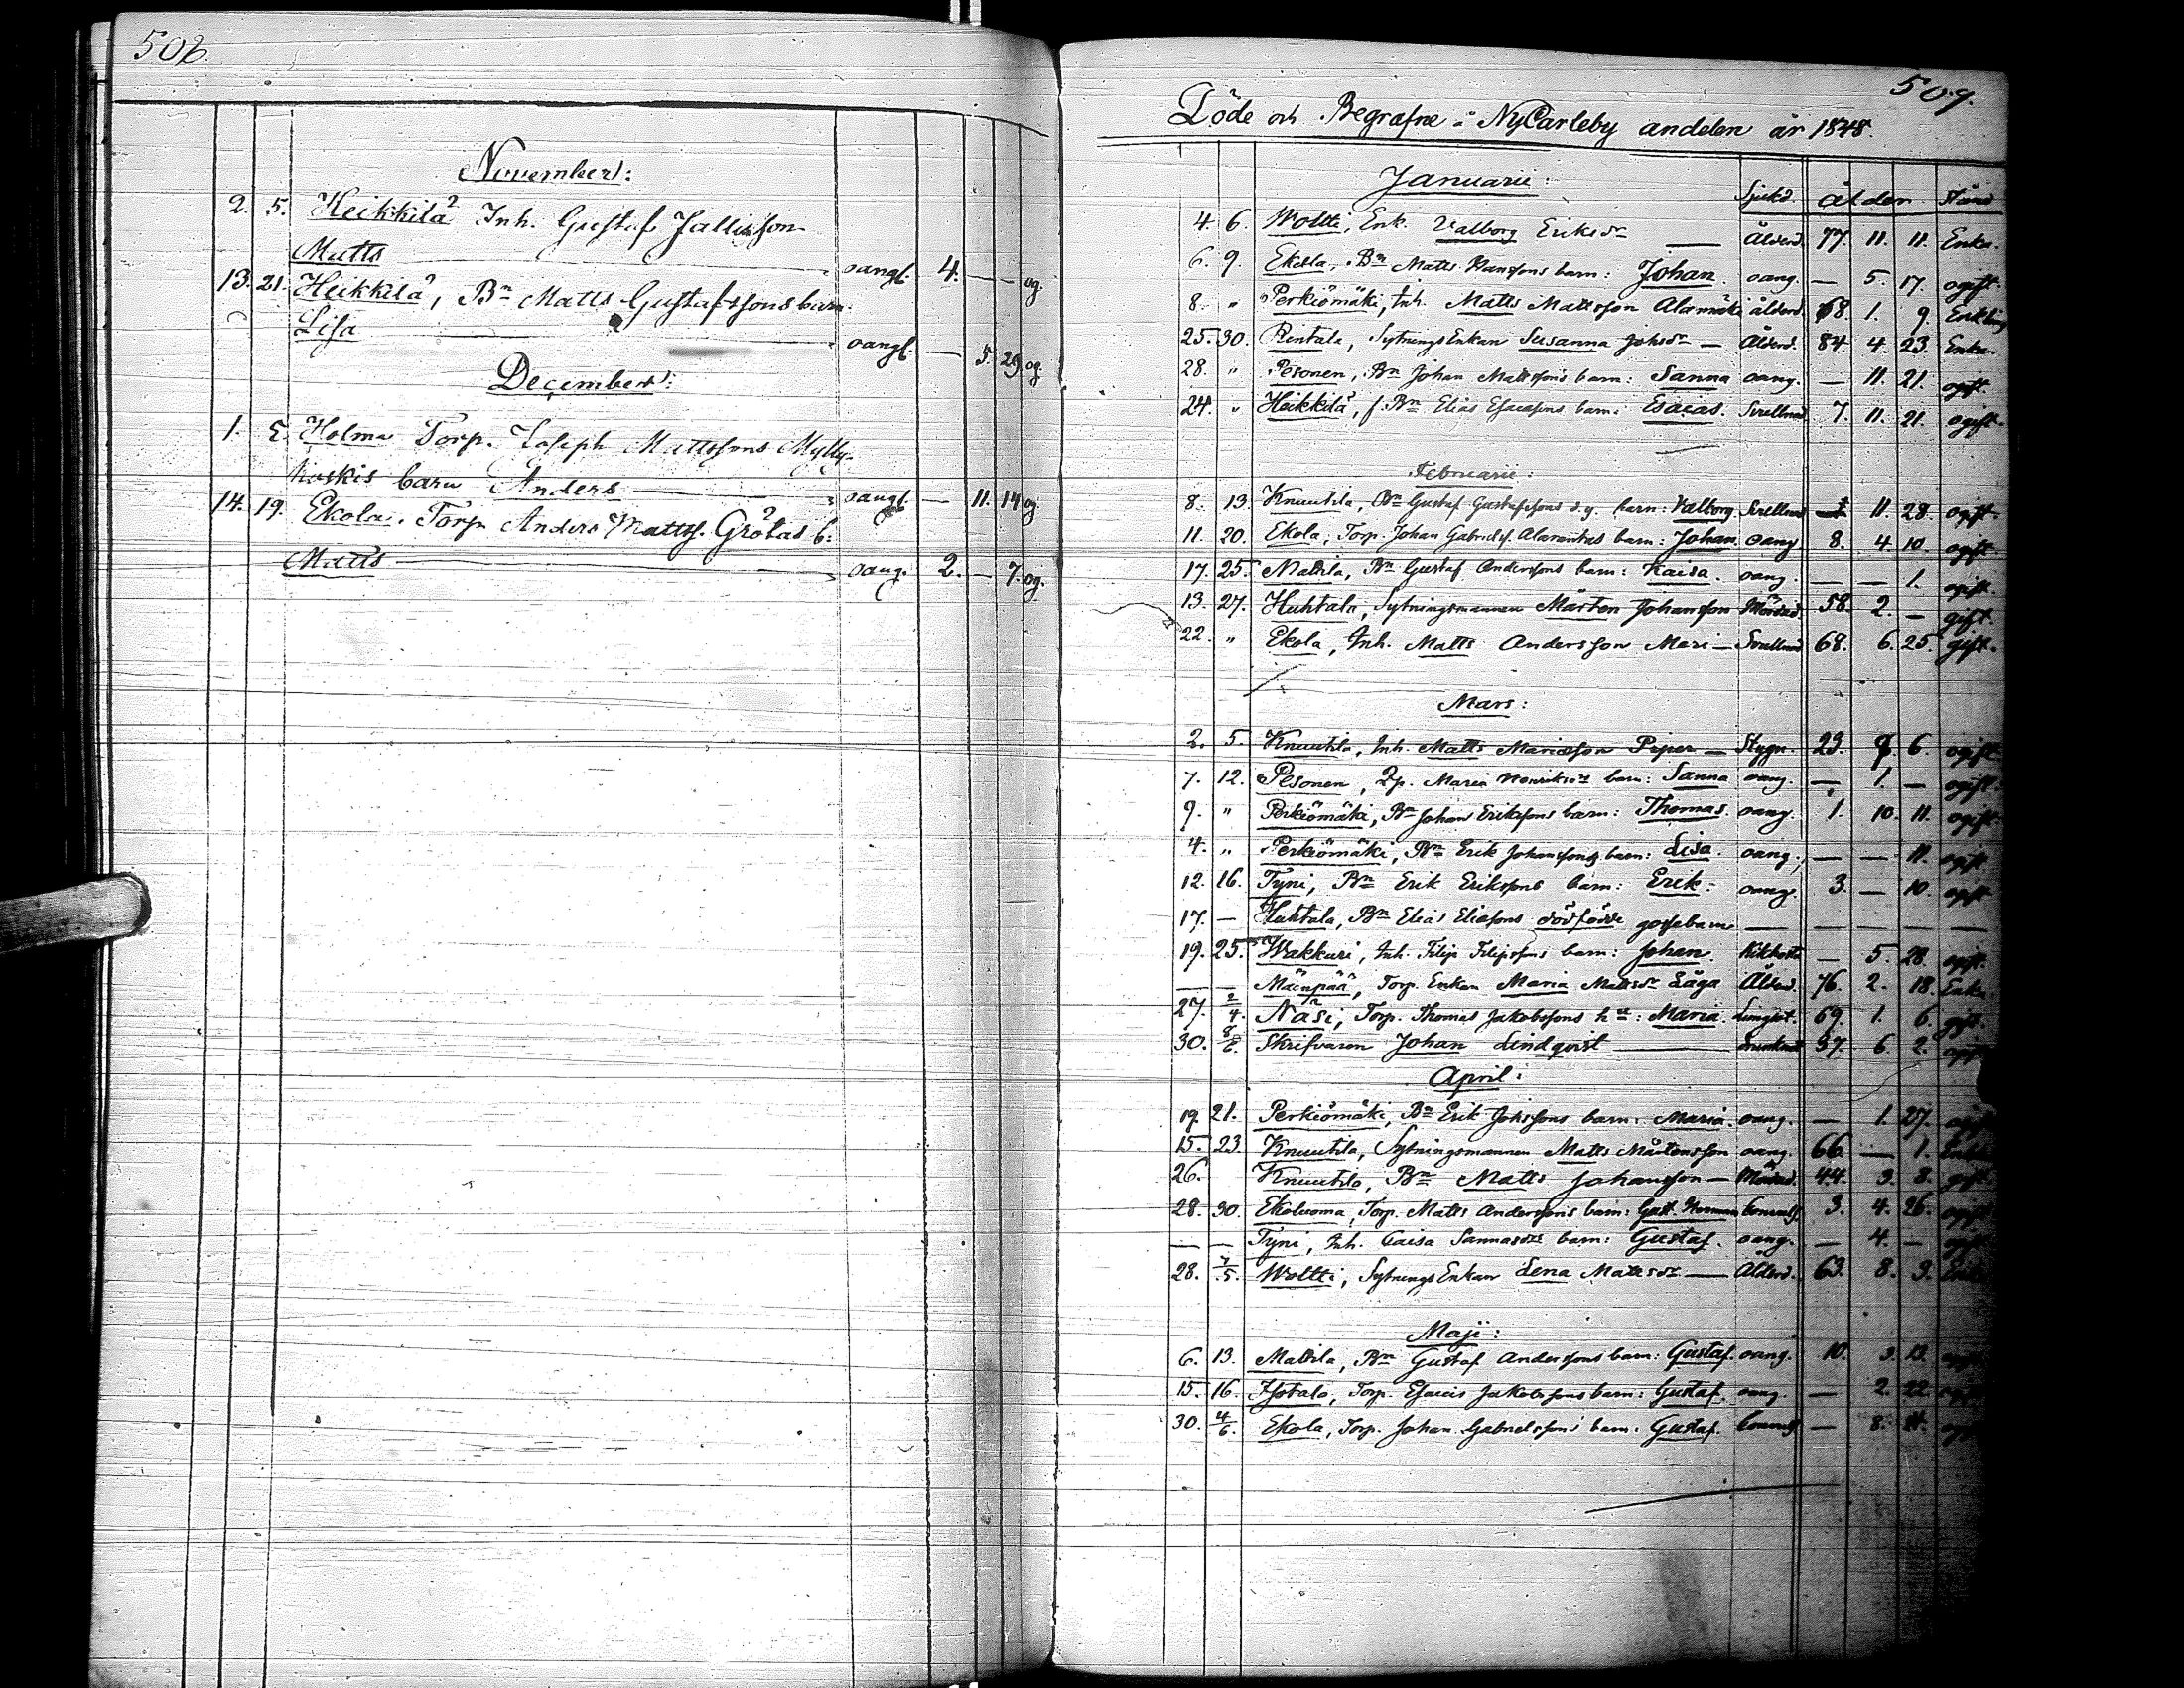 508.
November:
2. 5. Heikkilä Inh. Gustaf Jallisson
Matts oangf. 4. — — og.
13. 21. Heikkilä, Bn Matts Gustafssons barn
Lisa oangf. — 5. 29. og.
December:
1. 5. Holma Torp. Joseph Mattssons Mylly-
koskis barn Anders — oangf. — 11. 14 og
14. 19. Ekola. Torp. Anders Mattss. Gröbas b:
Matts — oang. 2. — 7. og.
509.
Döde och Begrafne i NyCarleby andelen år 1848.
Januarii: Sjukd. ålder Stånd
4. 6. Woltti, Enk. Valborg Eriksdr — Ålderd. 77. 11. 11. Enka.
6. 9. Ekola, Bn Matts Hanssons barn: Johan. oang. — 5. 17. ogift.
8. " Perkiömäki, Inh. Matts Mattsson Alamäki ålderd. 68. 1. 9. Enkling
25. 30. Rintala, SytningsEnkan Susanna Johsdr — Ålderd. 84. 4. 23. Enka.
28. " Pesonen, Bn Johan Mattssons barn: Sanna oang. — 11. 21. ogift.
24. " Heikkilä, f. Bn Elias Esaiasons barn: Esaias. Svullnad 7. 11. 21. ogift.
Februarii:
8. 13. Knuutila, Bn Gustaf Gustafssons d.y. barn: Valborg. Svullnad 11. 28. ogift.
11. 20. Ekola, Torp. Johan Gabrielss. Alarantas barn: Johan. oang. 8. 4. 10. ogift.
17. 25. Mattila, Bn Gustaf Anderssons barn: Kaisa. oang. — — 1. ogift.
13. 27. Huhtala, Sytningsmannen Mårten Johansson 58. 2. — gift.
22. " Ekola, Inh. Matts Andersson Mari — Svullnad 68. 6. 25. gift.
Mars:
2. 5. Knuutila, Inh. Matts Mariasson Piper — Stygn. 23. 6. ogift.
7. 12. Pesonen, Maria Henriksdr barn: Sanna oang. — 1. — ogift.
9. " Perkiömäki, Bn Johan Erikssons barn: Thomas. oang. 1. 10. 11. ogift.
4. " Perkiömäki, Bn Erik Johanssons barn: Lisa. oang. — — 11. ogift
12. 16. Tyni, Bn Erik Erikssons barn: Erik. oang. 3. — 10. ogift
17. — Huhtala, Bn Elias Eliasons dödfödde gossebarn — — — — —
19. 25. Wakkuri, Inh. Filip Filipssons barn: Johan. Kikhosta — 5. 28. ogift.
— — Mäenpää, Torp. Enkan Maria Mattsdr Låga Ålderd. 76. 2. 18. Enka.
27. 2/4. Näsi, Torp. Thomas Jakobssons hu: Maria. Lungsot. 69. 1. 6. gift.
30. 8/6. Skrifvaren Johan Lindqvist — 37. 6. 2.
April:
19. 21. Perkiömäki, Bn Erik Johssons barn: Maria. oang. — 1. 27.
15. 23. Knuutila, Sytningsmannen Matts Mårtensson oang. 66. — 1.
26. Knuutila, Bn Matts Johansson — 44. 3. 8. gift.
28. 30. Ekoluoma, Torp. Matts Anderssons barn: Gust. Herman 3. 4. 26.
— — Tyni, Inh. Caisa Sannasdrs barn: Gustaf. oang. — 4. —
28. 7/5. Woltti, SytningsEnkan Lena Mattsdr — Ålderd. 63. 8. 3.
Maji:
6. 13. Mattila, Bn Gustaf Anderssons barn: Gustaf. oang. 10. 3. 13.
15. 16. Isotalo, Torp. Esaias Jakobssons barn: Gustaf. oang. — 2. 22.
30. 4/6. Ekola, Torp. Johan Gabrielssons barn: Gustaf. — 8.